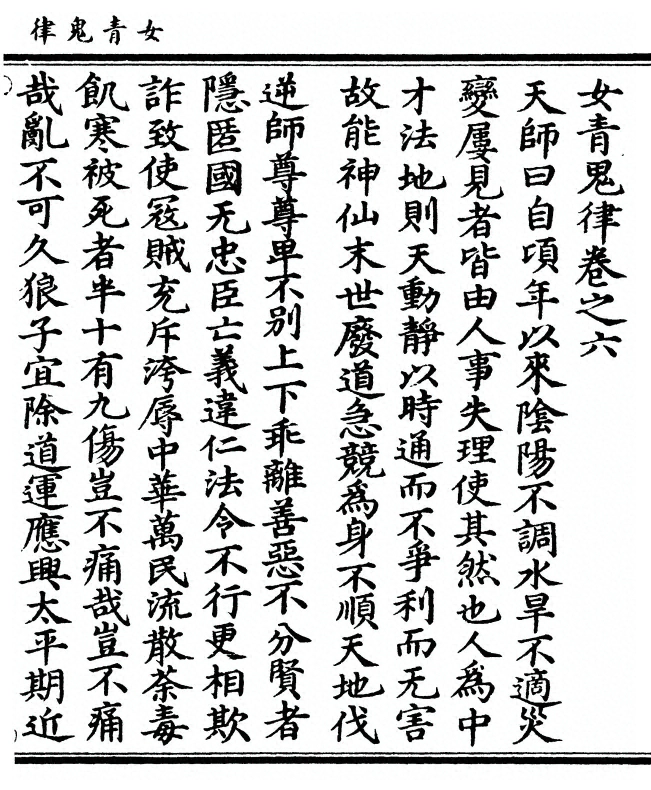 女青鬼律
女青鬼律卷之六
天師曰自頃年以來陰陽不調水旱不適災
變屢見者皆由人事失理使其然也人為中
才法地則天動靜以時通而不爭利而无害
故能神仙末世廢道急競為身不順天地伐
逆師尊尊卑不別上下乖離善惡不分賢者
隱匿國无忠臣亡義違仁法令不行更相欺
詐致使寇賊充斥洿辱中華萬民流散荼毒
飢寒被死者半十有九傷豈不痛哉豈不痛
哉亂不可久狼子宜除道運應興太平期近